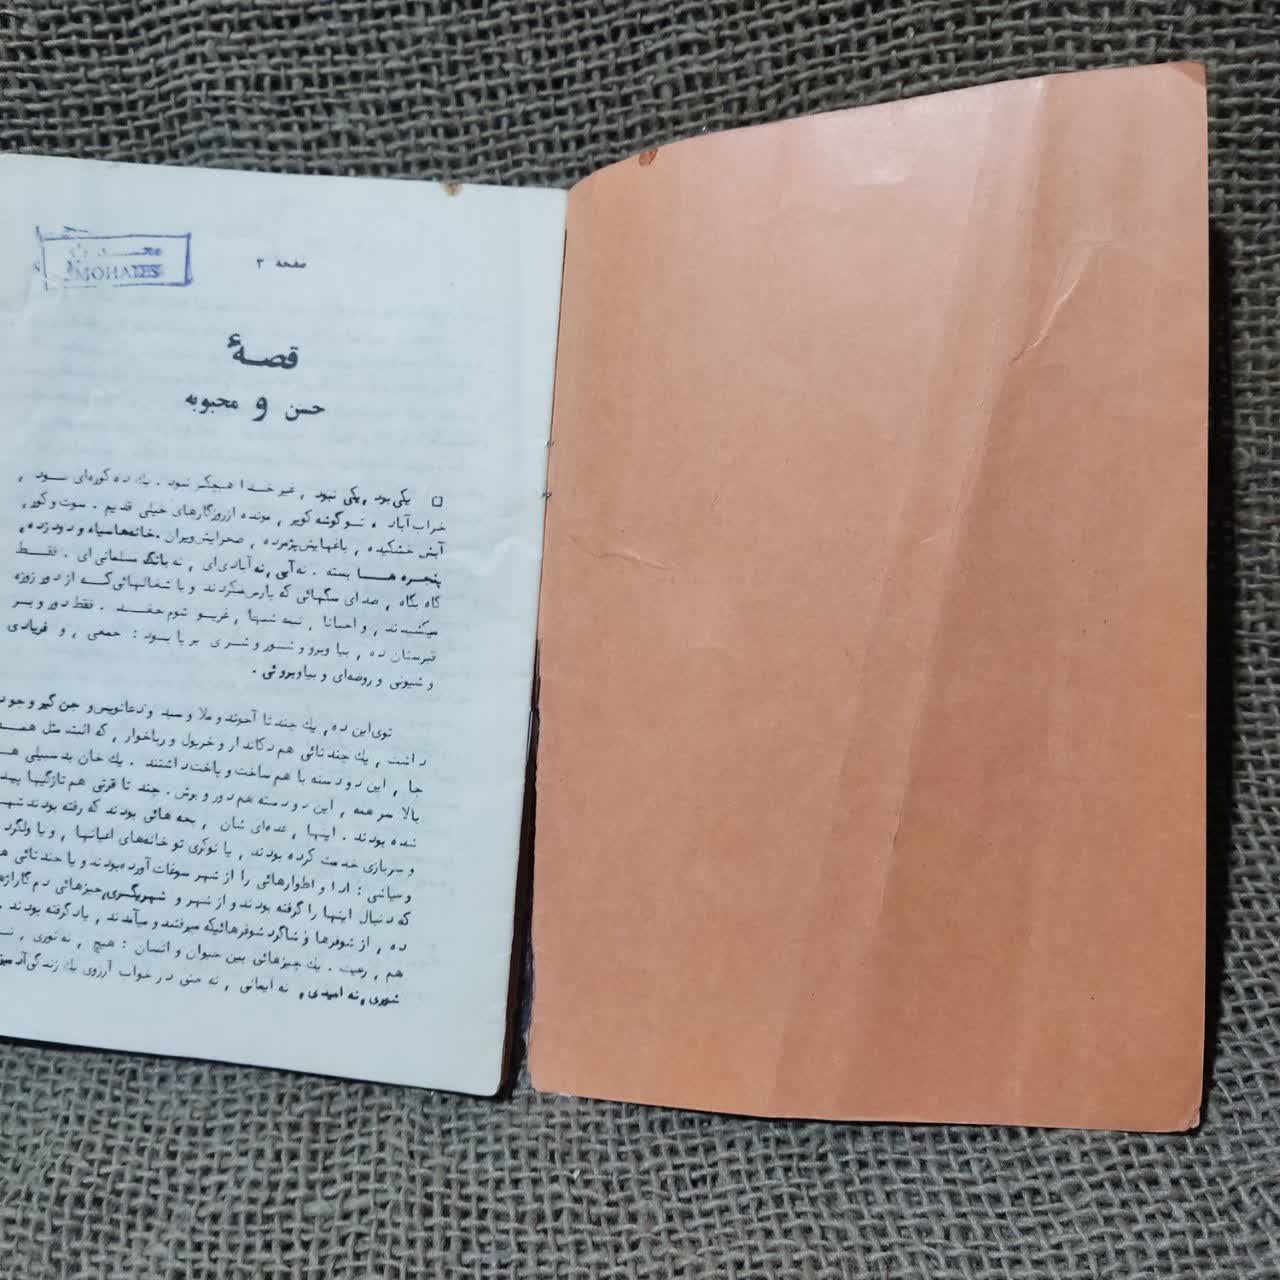 MOHALES
صفحه ۳
قصهٔ
حسن و محبوبه
□ یکی بود , یکی نبود , غیر خدا هیچکر نبود . یك ده کوره‌ای بود ,
خراب آباد , تو گوشه کویر , مونده از روزگارهای خیلی قدیم . سوت و کور ,
آبش خشکیده , باغهایش پژمرده , صحرایش ویران . خانه‌ها سیاه و دود زده ,
پنجره هـا بسته . نه آبی , نه آبادی‌ای , نه بانگ مسلمانی‌ای . فقط
گاه بگاه , صدای سگهائی که پارس میکردند و یا شغالهائی که از دور زوزه
میکشیدند , و احیانا , نیمه شبها , غریو شوم جغد . فقط دور و بر
قبرستان ده , بیا وبرو و شور و شری بر پا بود : جمعی , و فریادی
و شیونی و روضه‌ای و بیاوبروئی .
توی این ده , یك چند تا آخوند و ملا و سید و دعانویس و جن گیر وجود
داشت , یك چند تائی هم دکاندار و خرپول و رباخوار , که البته مثل همه
جا , این دو دسته با هم ساخت و پاخت داشتند . یك خان بد سبیلی هم
بالا سر همه , این دو دسته هم دور و برش . چند تا قرتی هم تازگیها پیدا
شده بودند . اینها , عده‌ای شان , بچه هائی بودند که رفته بودند شهر
و سربازی خدمت کرده بودند , یا نوکری تو خانه‌های اعیانها , و یا ولگردی
و عیاشی : ادا و اطوارهائی را از شهر سوغات آورده بودند و یا چند تائی هم
که دنبال اینها را گرفته بودند و از شهر و شهریگری , چیزهائی دم گاراژ
ده , از شوفرها و شاگرد شوفرهائیکه میرفتند و میآمدند , یاد گرفته بودند .
هم , رعیت . یك چیزهائی بین حیوان و انسان : هیچ , نه نوری , نه
شوری , نه امیدی , نه ایمانی , نه حتی در خواب آرزوی یك زندگی